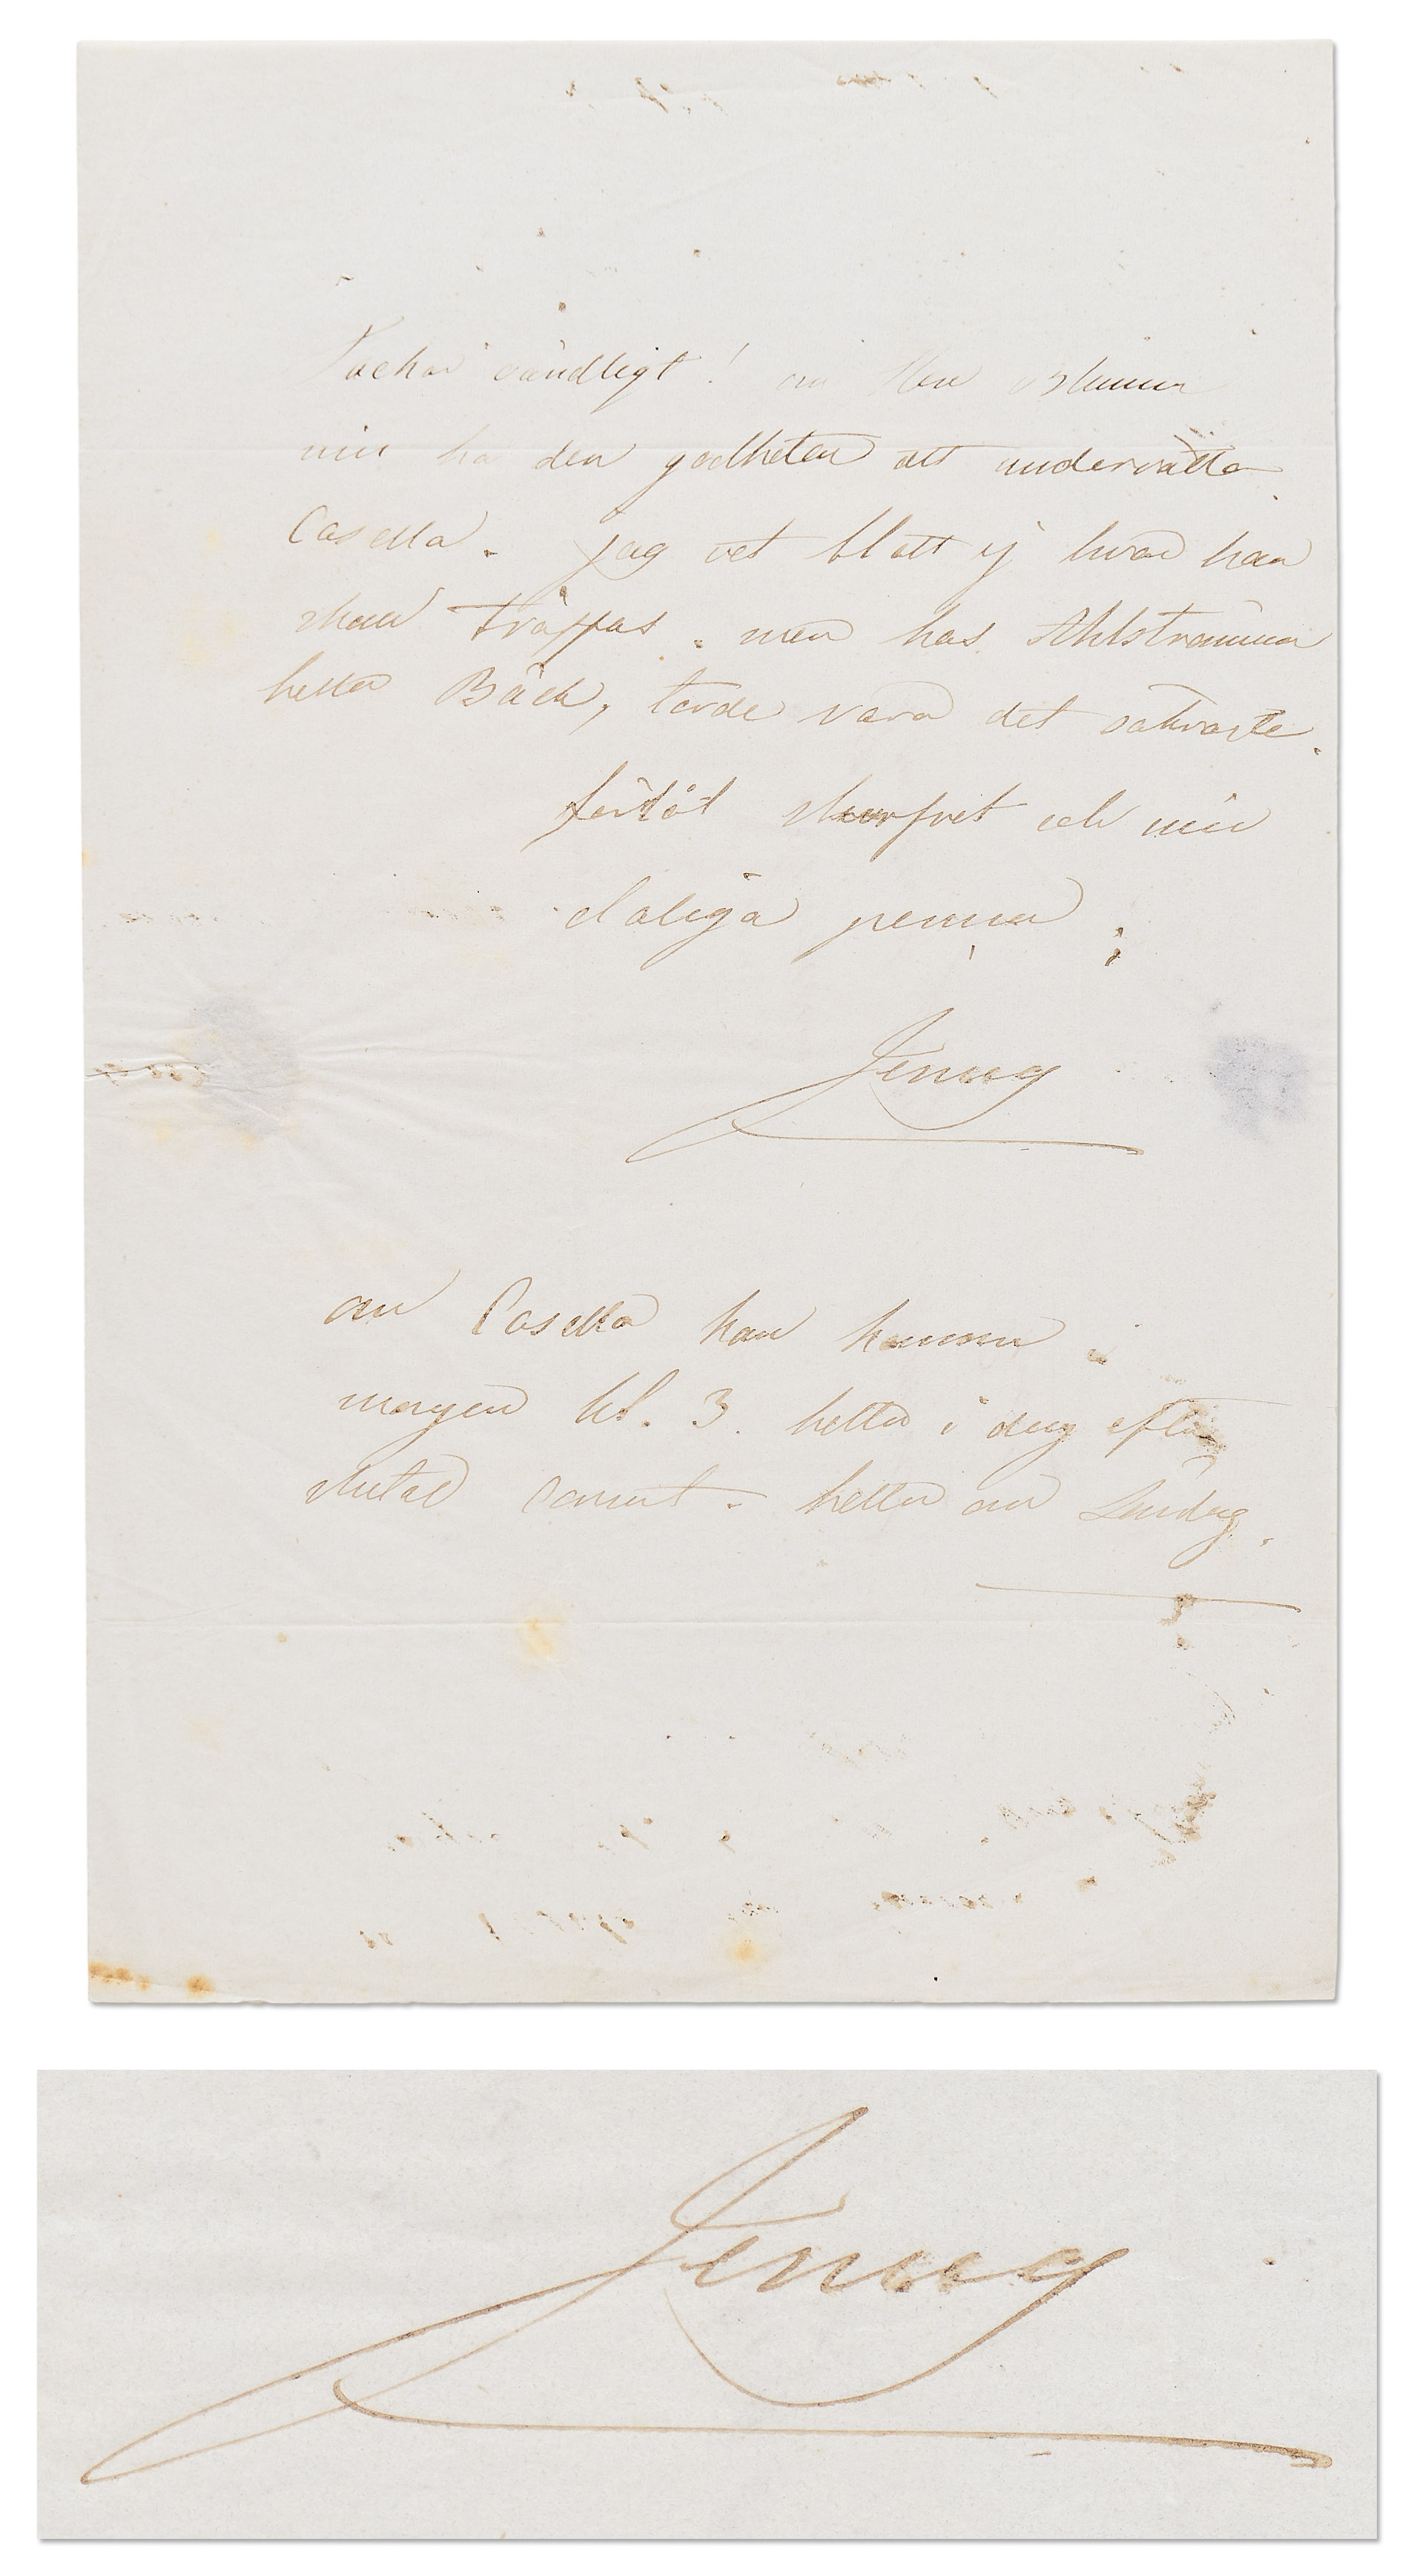 Tackar oändligt! om Herr
vill ha den godheten att underrätta
Casella. jag vet blott ej hvar han
skall träffas. men hos Ahlströmmer
heller Bäck, torde vara det säkraste.
förlåt skurfvet och min
dåliga penna;
Jenny
om Casella kan komma i
morgen kl. 3. heller i dag efter
slutad - heller om Lördag.
Jenny